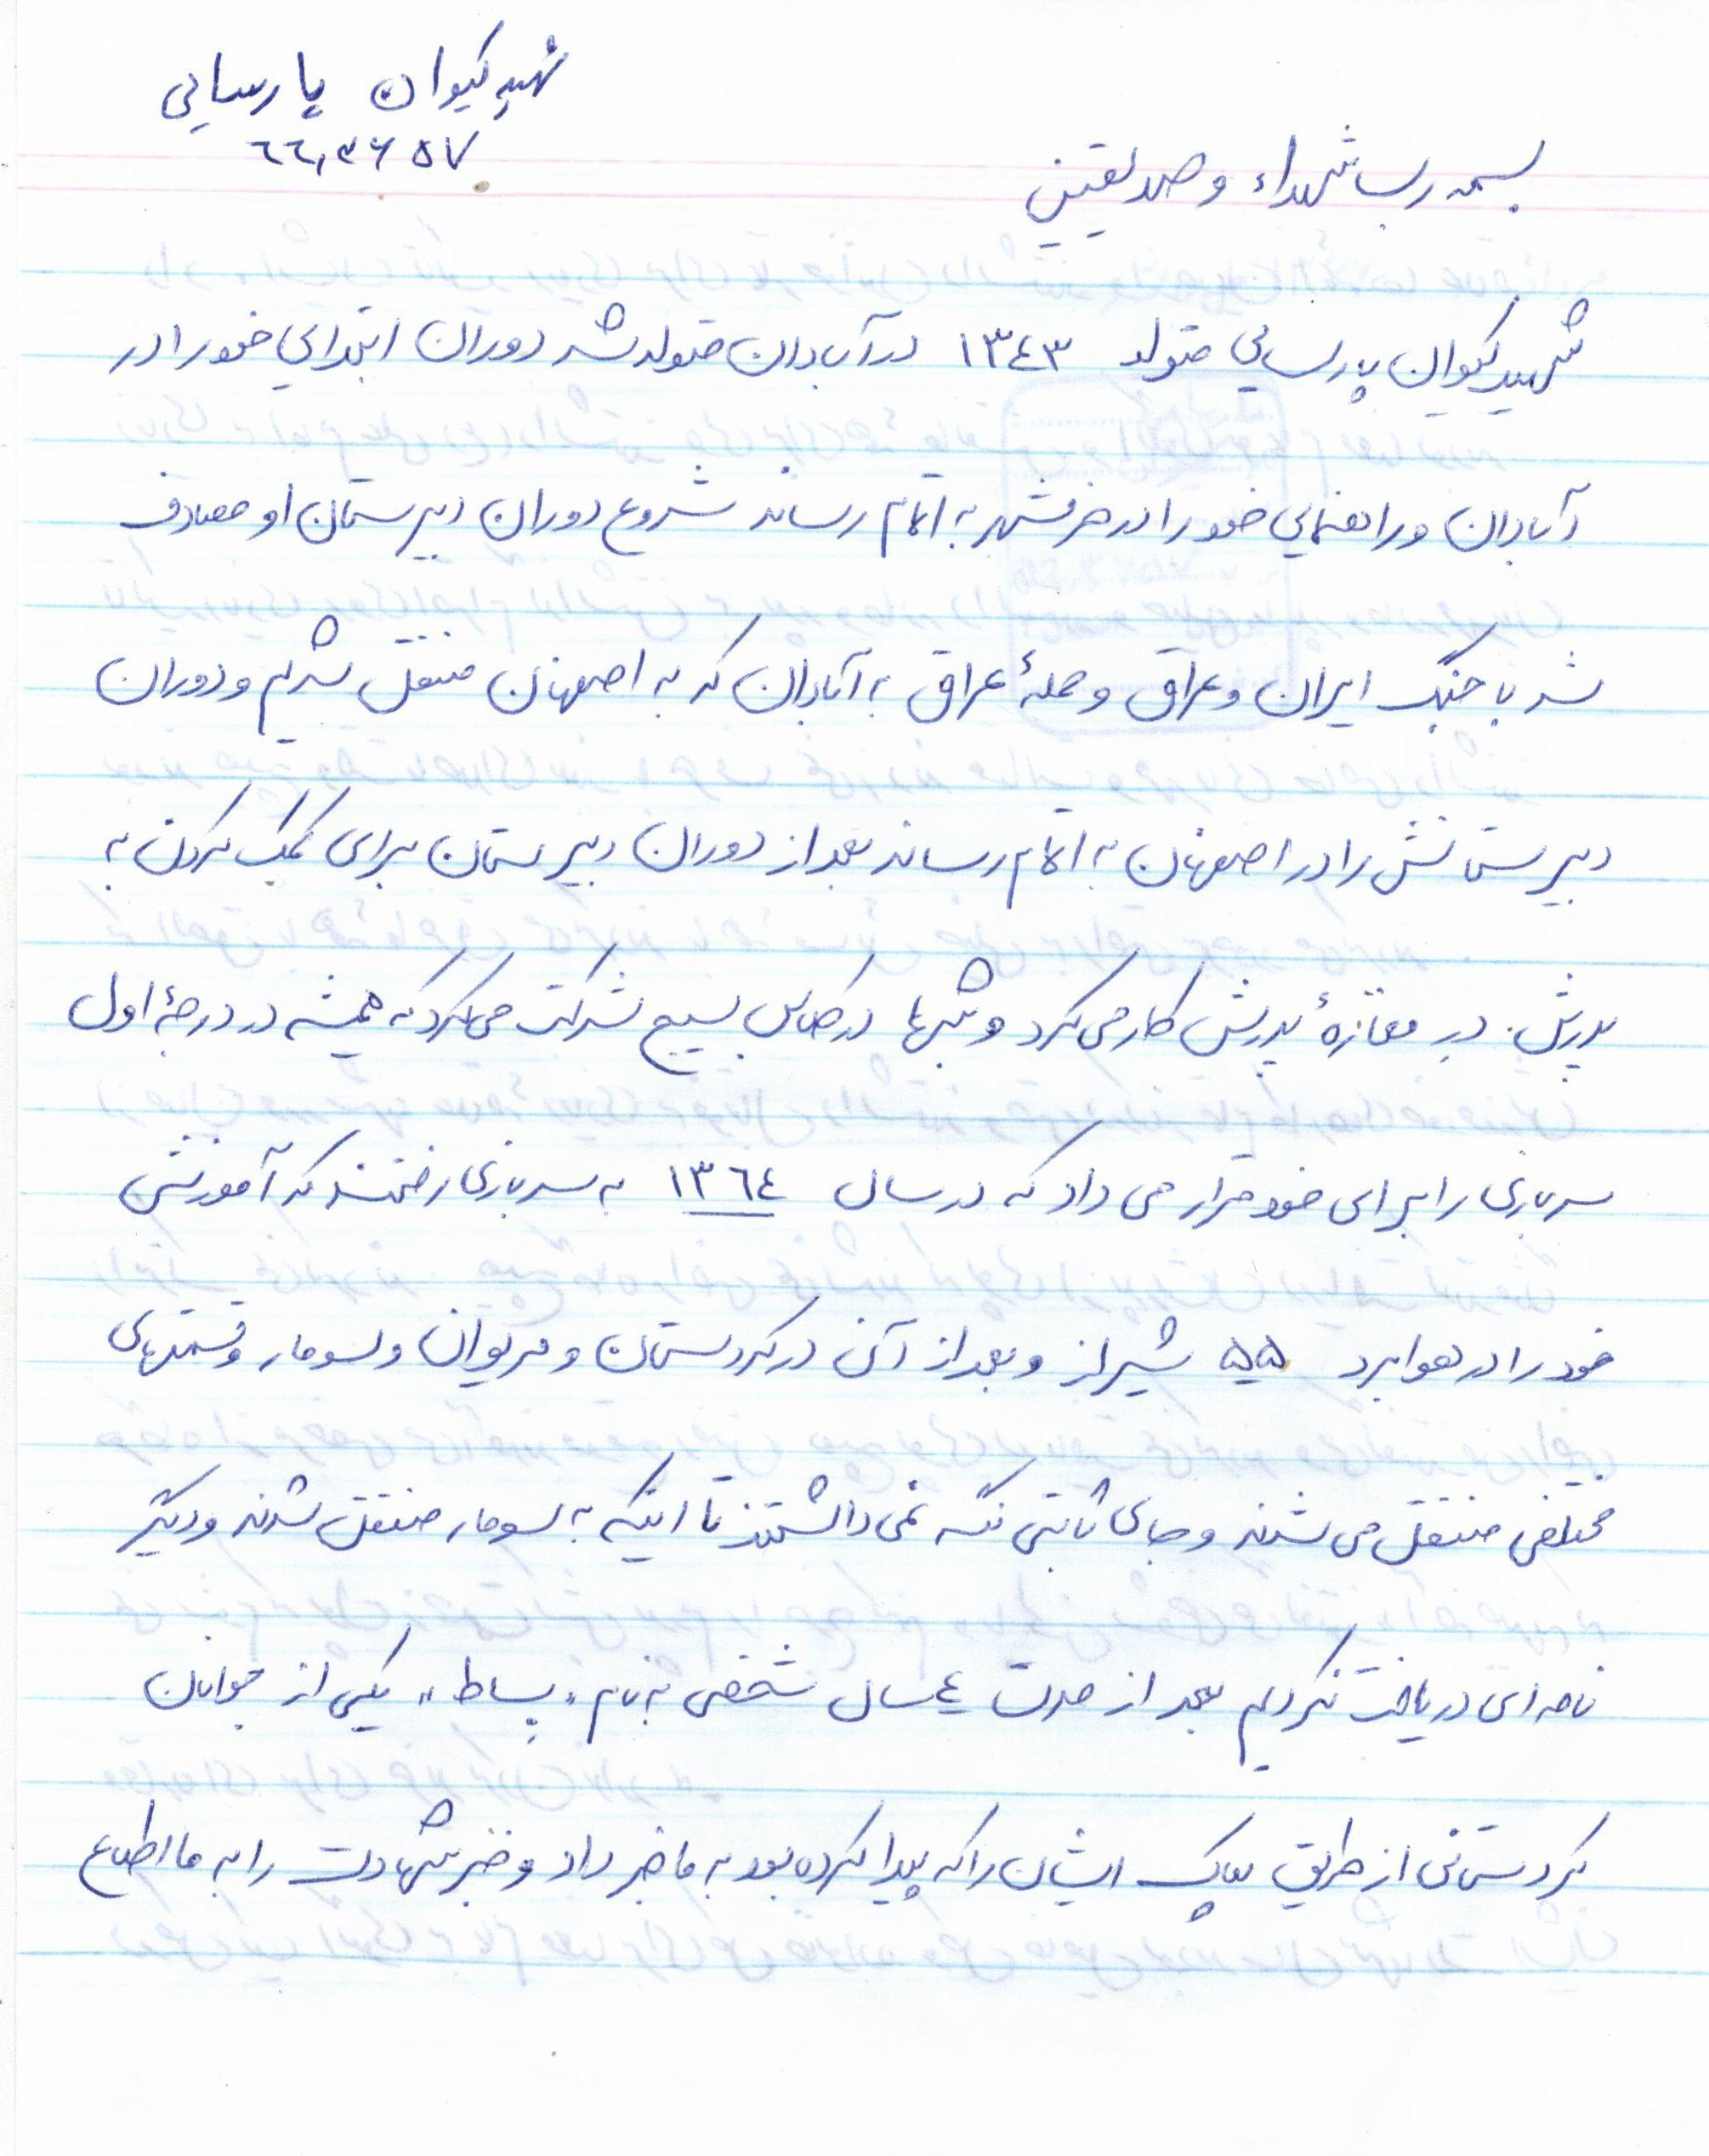 شهید کیوان پارسایی
بسمه رب شهداء و صدیقین
شهید کیوان پارسایی متولد ۱۳٤۳ در آبادان متولد شد دوران ابتدایی خود را در
آبادان و راهنمایی خود را در خرمشهر به اتمام رساند شروع دوران دبیرستان او مصادف
شد با جنگ ایران و عراق و حملهٔ عراق به آبادان که به اصفهان منتقل شدیم و دوران
دبیرستانش را در اصفهان به اتمام رساند بعد از دوران دبیرستان برای کمک کردن به
پدرش. در مغازهٔ پدرش کار می کرد و شبها در کلاس بسیج شرکت می کرد که همیشه در درجهٔ اول
سربازی را برای خود قرار می داد که در سال ۱۳٦٤ به سربازی رفتند که آموزش
خود را در هوابرد ۵۵ شیراز و بعد از آن در کردستان و مریوان و سومار و قسمتهای
مختلفی منتقل می شدند و جای ثابتی نمی داشتند تا اینکه به سومار منتقل شدند و دیگر
نامه ای دریافت نکردیم بعد از مدت ٤ سال شخصی به نام «بساط» یکی از جوانان
کردستانی از طریق پلاک ایشان را که پیدا کرده بود به ما خبر داد و خبر شهادت را به ما اطلاع